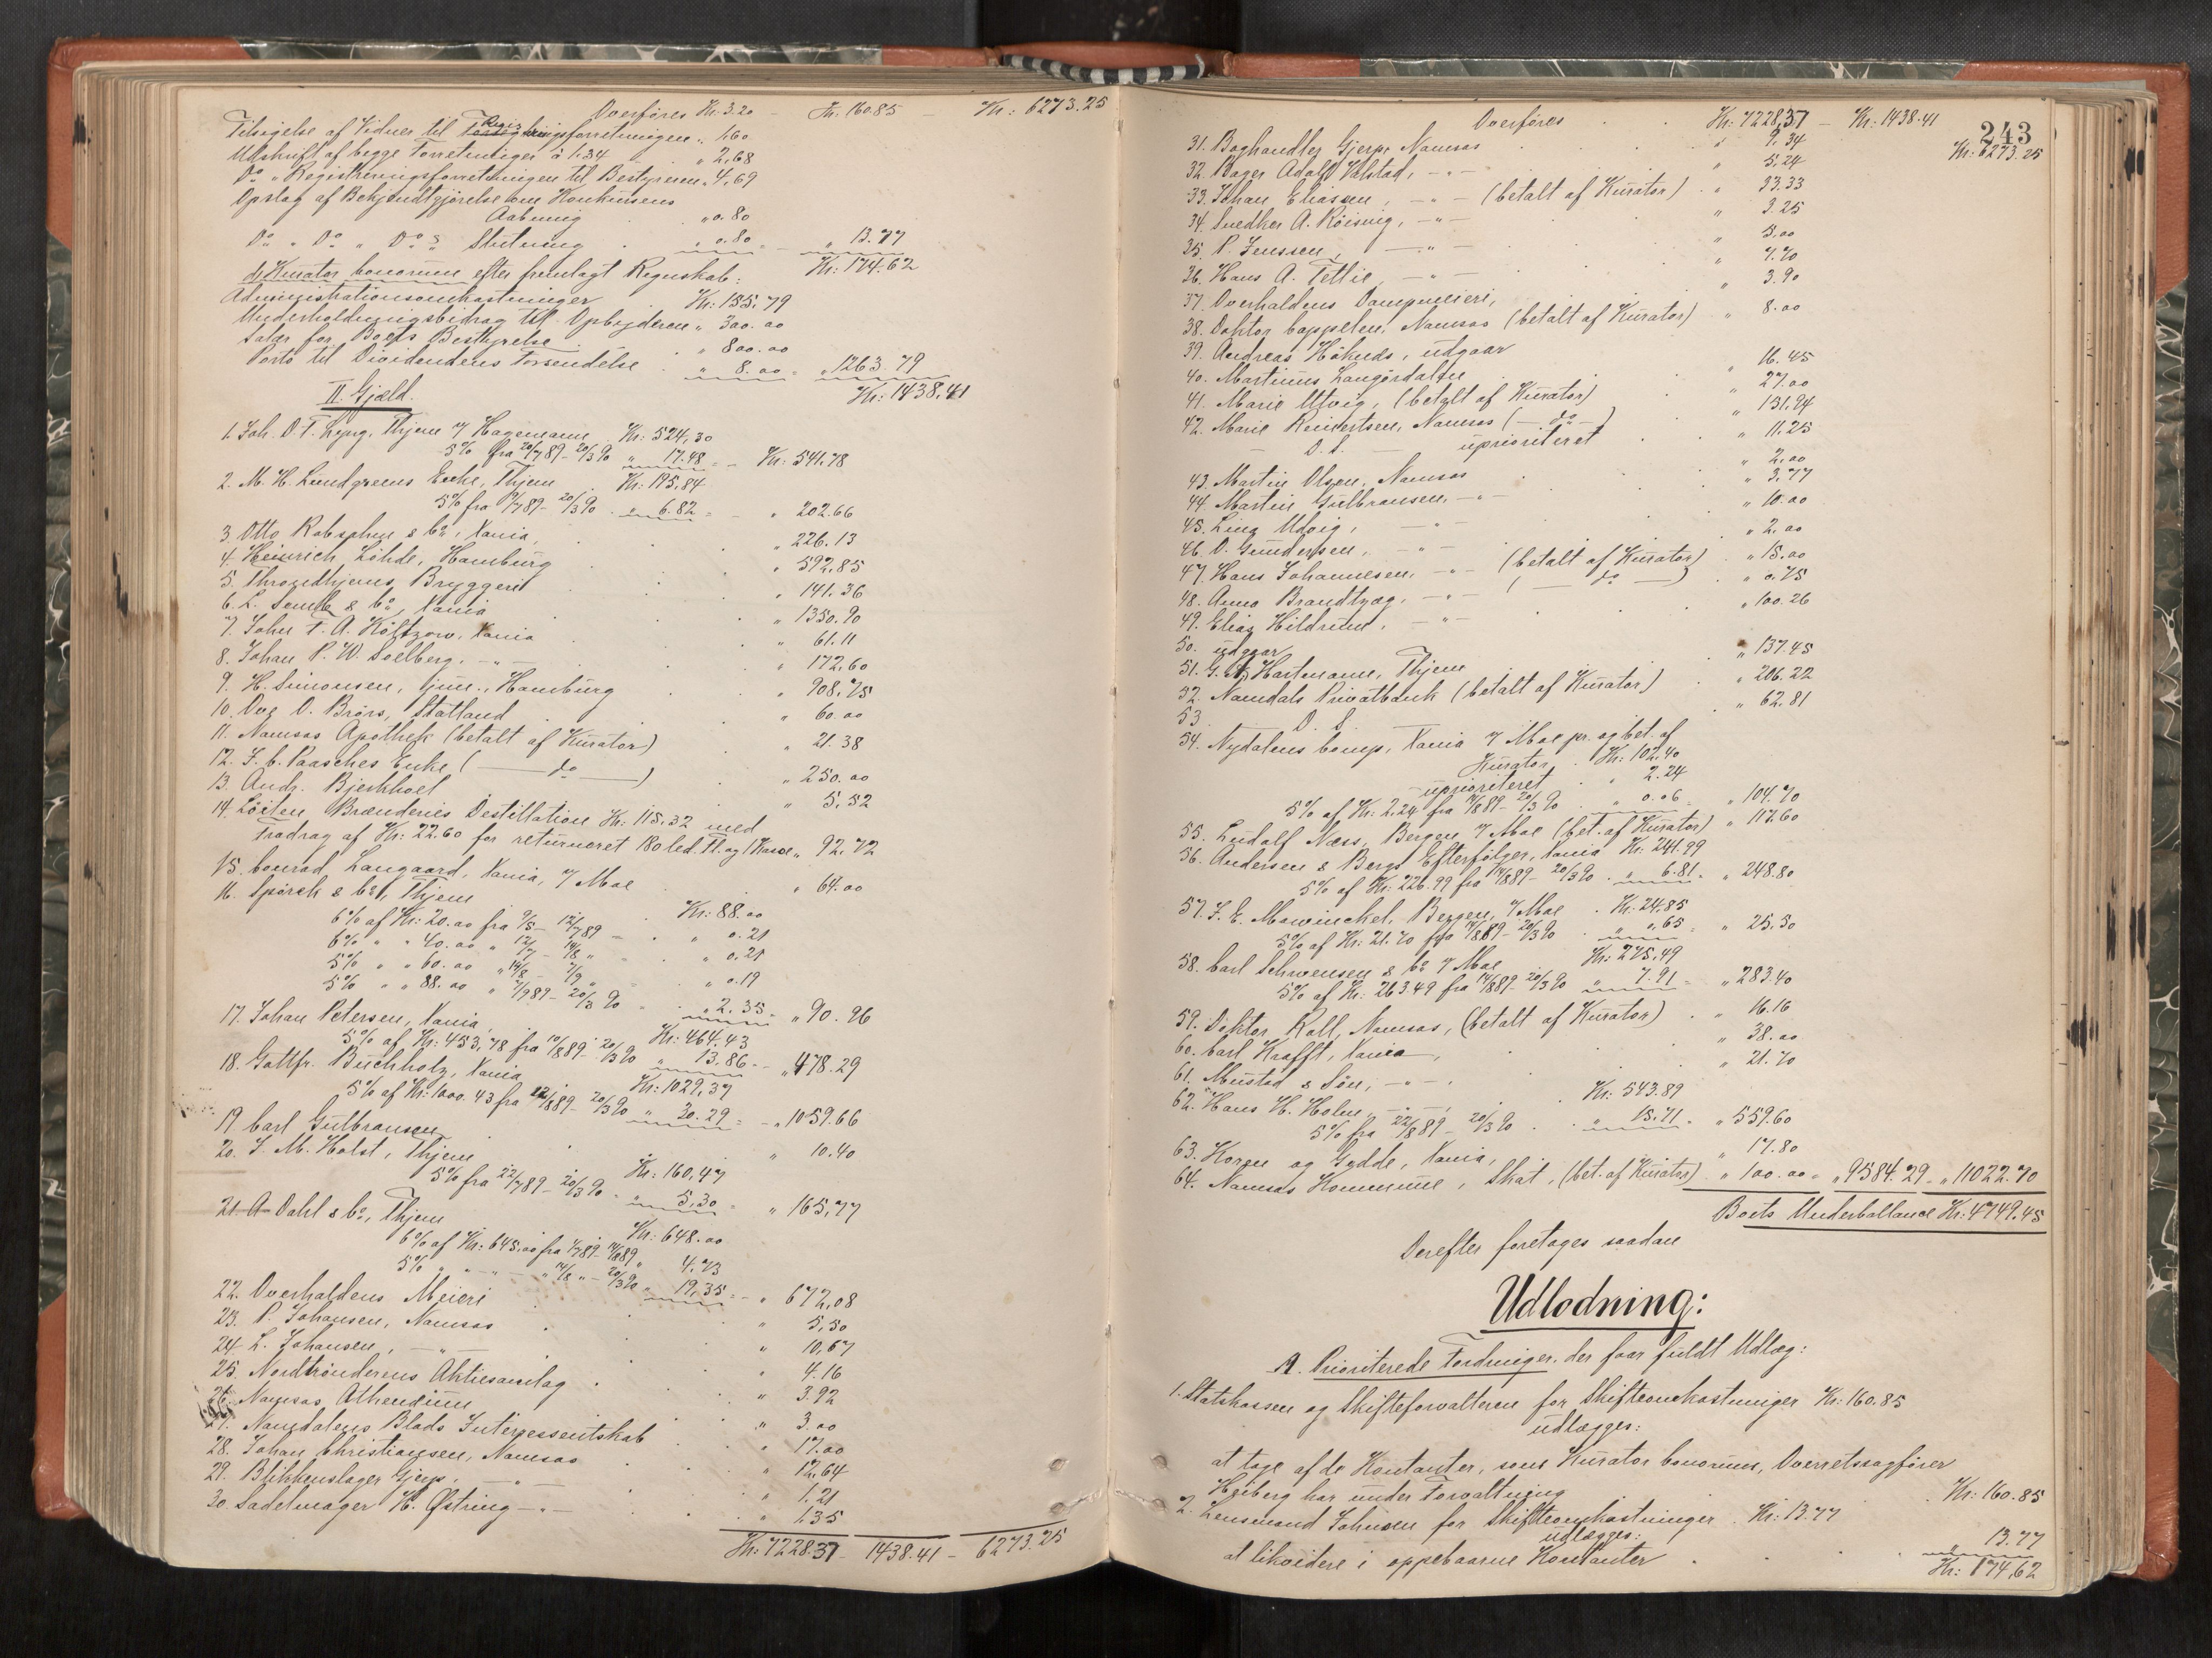 Overføres Kr: 3.20 - Kr. 160.85 Kr: 6273.25
Tilsigelse af Vidner til Registreringsforretningen „ 1.60
Udskrift af begge Forretninger à 1.34 „ 2,68
Do „ Registreringsforretningen til Bestyreren „ 4,69
Opslag af Bekjendtgjørelse om Konkursens
Aabning „ 0.80
Do „ Do „ Do s Slutning „ 0.80 = „ 13.77
Kr: 174.62
d, Kurator bonorum efter fremlagt Regnskab:
Administrationsomkostninger Kr: 155.79
Underholdningsbidrag til Opbyderen „ 300.00
Salær for Boets Bestyrelse „ 800.00
Porto til Dividendens Forsendelse „ 8.00 = „ 1263.79
Kr: 1438.41
II. Gjæld.
1. Joh. D. F. Lyng, Thjem v/ Hagemann Kr: 524,30
5% fra 20/7 89 - 20/3 90 „ 17.48 = - Kr: 541.78
2. M. H. Lundgreens Enke, Thjem Kr: 195,84
5% fra 9/7 89 - 20/3 90 „ 6.82 = - „ 202.66
3. Otto Robsahm & Co, Xania, „ 226.13
4. Heinrich Löhde, Hamburg „ 592,85
5. Throndhjems Bryggeri „ 141.36
6. L. & Co, Xania „ 1350.90
7. Johs F. A. Höltzow, Xania „ 61.11
8. Johan P. W. Soelberg, -„- „ 172,60
9. H. Simonsen, jun., Hamburg „ 908,75
10. Ove O. Brörs, Statland „ 60.00
11. Namsos Apothek (betalt af Kurator) „ 21.38
12. J. C. Paasches Enke (— do —) „ 250.00
13. Andr. Bjerkhoel „ 5,52
14. Löiten Brænderies Destillation Kr: 115.32 med
Fradrag af Kr: 22.60 for returneret 180 led. Fl. og 1 Kasse „ 92.72
15. Conrad Langaard, Xania, v/ Moe „ 64.00
16. Spörck & Co, Thjem Kr: 88.00
6% af Kr: 20.00 fra 9/5 - 12/7 89 - „ 0.21
6% „ „ 40.00 „ 12/7 - 14/8 „ „ 0,21
5% „ „ 60.00 „ 14/8 - 7/9 „ „ 0.19
5% „ „ 88.00 „ 7/9 89 - 20/3 90 „ 2.35 = „ 90.96
17. Johan Petersen, Xania, Kr: 464.43
5% af Kr: 453,78 fra 10/8 89 - 20/3 90 „ 13.86 = - „ 478.29
18. Gottfr. Buchholz, Xania Kr: 1029,37
5% af Kr: 1000.43 fra 12/8 89 - 20/3 90 „ 30.29 = - „ 1059.66
19. Carl Gulbransen „ 10.40
20. J. M. Holst, Thjem Kr: 160,47
5% fra 22/7 89 - 20/3 90 „ 5,30 = „ 165,77
21. A Dahl & Co, Thjem Kr: 648.00
6% af Kr: 645.00 fra 4/7 89 - 14/8 89 „ 4.73
5% „ „ - - „ 14/8 „ - 20/3 90 „ 19,35 = - „ 672,08
22. Overhaldens Meieri „ 5,50
23. P. Johansen, Namsos „ 10,67
24. L. Johansen, -„- „ 4.16
25. Nordtrönderens Aktiesamlag „ 3.92
26. Namsos Athenæum „ 3.00
27. Namdalens Blads Interessentskab „ 17.00
28. Johan Christiansen, Namsos „ 12,64
29. Blikkenslager Gjerp, -„- „ 1.21
30. Sadelmager H. Østring -„- „ 1.35
Kr: 7228.37 - 1438.41 - 6273.25
243
Overføres Kr: 7228,37 - Kr: 1438.41 Kr: 6273.25
31. Boghandler Gjerp, Namsos „ 9,34
32. Bager Adolf Volstad, -„- „ 5,24
33. Johan Eliassen, -„- (betalt af Kurator) „ 33.33
34. Snedker A. Röising, -„- „ 3.25
35. P. Jenssen, -„- „ 5.00
36. Hans A. Tetlie, -„- „ 7.70
37. Overhaldens Dampmeieri, „ 3.90
38. Doktor Cappelen, Namsos (betalt af Kurator) „ 8.00
39. Andreas Höknes, udgaar
40. Martinus Langördalsen „ 16.45
41. Marie Utvig, (betalt af Kurator) „ 27.00
42. Marie Reinertsen, Namsos (— do —) „ 131,94
— D. S. — uprioriteret „ 11,25
43. Martin Olsen, Namsos „ 2,00
44. Martin Gulbransen, -„- „ 3,77
45. Lina Udvig, -„- „ 10.00
46. O. Gundersen, -„- „ 2,00
47. Hans Johannesen, -„- (betalt af Kurator) „ 15.00
48. Anna Brandtzæg, -„- (— do —) „ 0.75
49. Elias Hildrum, -„- „ 100.26
50. udgaar
51. G. Hartmann, Thjem „ 137.45
52. Namdals Privatbank (betalt af Kurator) „ 206.22
53. — D. S. — „ 62,81
54. Nydalens Comp., Xania v/ Moe pr. og bet. af
Kurator Kr: 102,40
uprioriteret „ 2.24
5% af Kr: 2,24 fra 14/8 89 - 20/3 90 „ 0.06 = „ 104.70
55. Ludolf Næss, Bergen v/ Moe (bet. af Kurator) „ 117.60
56. Andersen & Bergs Efterfölger, Xania Kr: 241.99
5% af Kr: 226.99 fra 14/8 89 - 20/3 90 „ 6.81 = „ 248.80
57. J. E. Mowinckel, Bergen, v/ Moe Kr: 24,85
5% af Kr: 21.70 fra 14/8 89 - 20/3 90 „ 0,65 = „ 25,50
58. Carl Schwensen & Co v/ Moe Kr: 275,49
5% af Kr: 263.49 fra 14/8 89 - 20/3 90 „ 7.91 = „ 283.40
59. Doktor Roll, Namsos, (betalt af Kurator) „ 16.16
60. Carl Krafft, Xania, „ 38.00
61. Mustad & Sön, -„-, „ 21.70
62. Hans H. Holm, -„-, Kr: 543.89
5% fra 22/8 89 - 20/3 90 „ 15.71 = „ 559.60
63. Koren og Gedde, Xania, „ 17.80
64. Namsos Kommune, Skat, (bet. af Kurator) „ 100.00 = „ 9584.29 = „ 11022.70
Boets Underballance Kr: 4749.45
Derefter foretages saadan
Udlodning:
A. Prioriterede Fordringer, der faar fuldt Udlæg:
1. Statskassen og Skifteforvalteren for Skifteomkostninger Kr: 160.85
udlægges:
at tage af de Kontanter, som Kurator bonorum, Overretssagfører
Heiberg har under Forvaltning Kr: 160.85
2. Lensmand Johnsen for Skifteomkostninger Kr: 13.77
udlægges:
at likvidere i oppebaarne Kontanter „ 13.77
Kr: 174,62